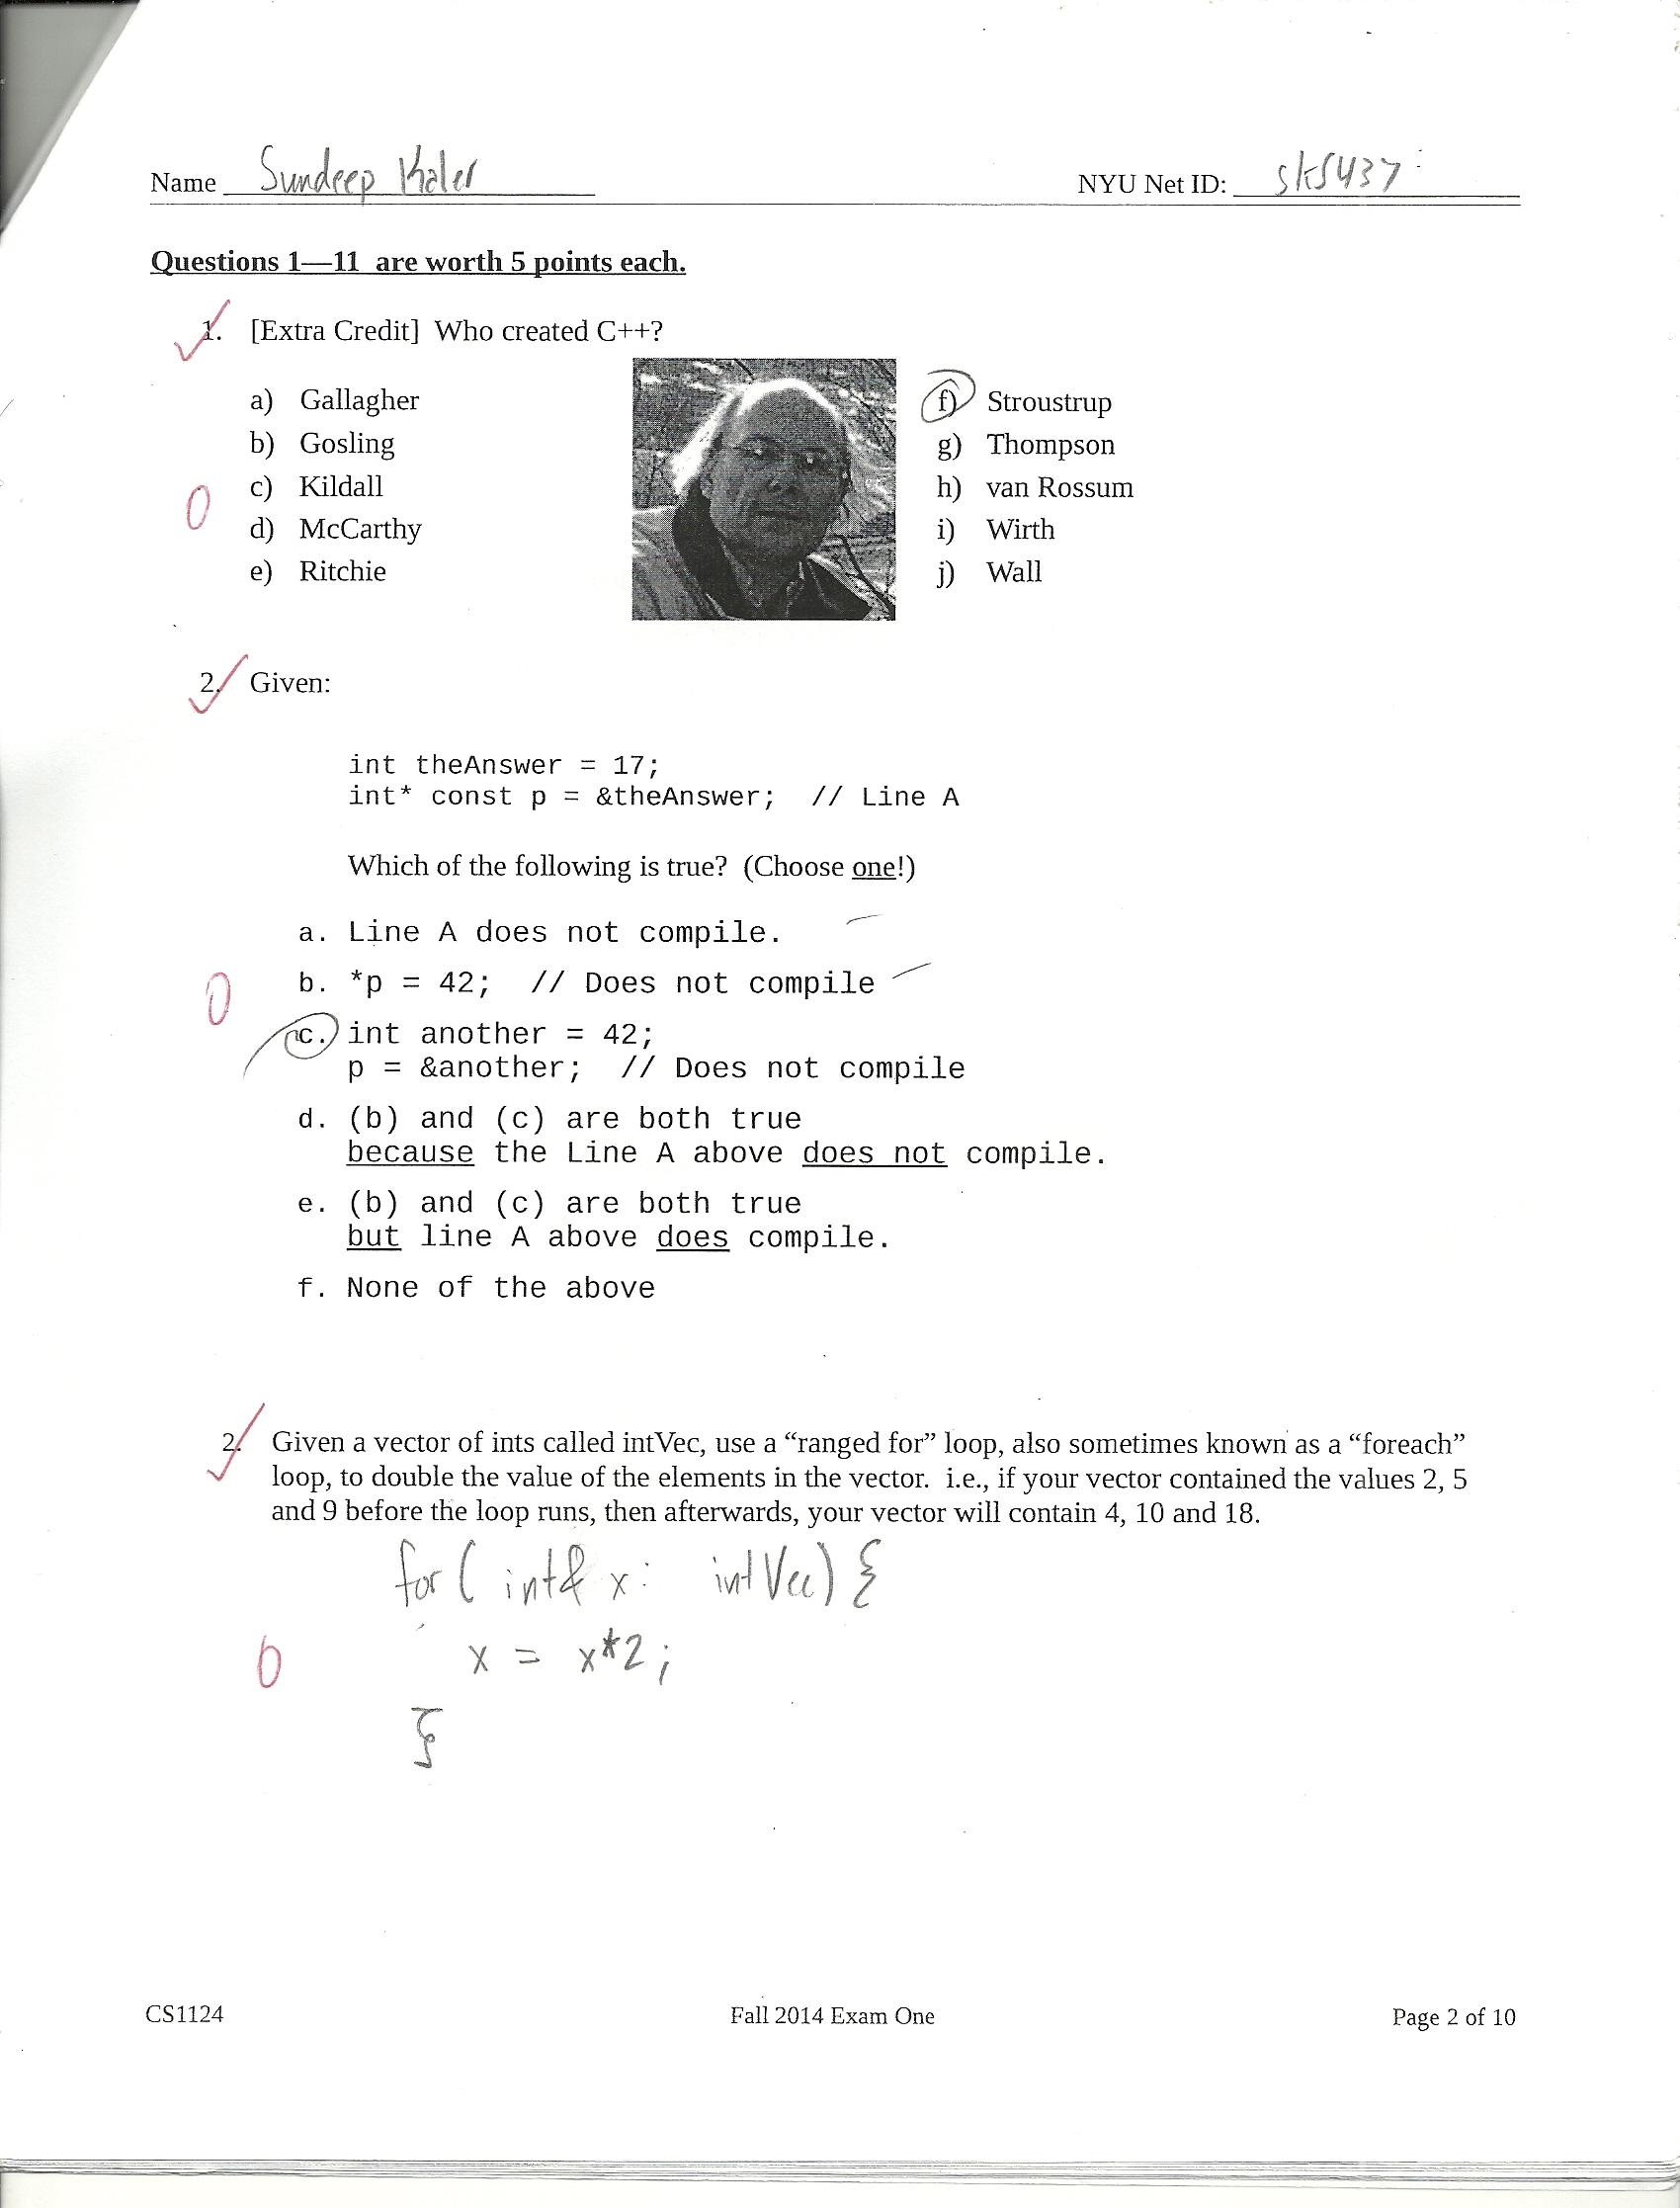 Name Sundeep Kaler NYU Net ID: sks437
Questions 1—11 are worth 5 points each.
1. [Extra Credit] Who created C++?
a) Gallagher
b) Gosling
c) Kildall
d) McCarthy
e) Ritchie
f) Stroustrup
g) Thompson
h) van Rossum
i) Wirth
j) Wall
0
2. Given:
int theAnswer = 17;
int* const p = &theAnswer; // Line A
Which of the following is true? (Choose one!)
a. Line A does not compile.
b. *p = 42; // Does not compile
0
c. int another = 42;
p = &another; // Does not compile
d. (b) and (c) are both true
because the Line A above does not compile.
e. (b) and (c) are both true
but line A above does compile.
f. None of the above
2. Given a vector of ints called intVec, use a “ranged for” loop, also sometimes known as a “foreach”
loop, to double the value of the elements in the vector. i.e., if your vector contained the values 2, 5
and 9 before the loop runs, then afterwards, your vector will contain 4, 10 and 18.
for( int& x: intVec) {
0 x = x*2;
}
CS1124 Fall 2014 Exam One Page 2 of 10